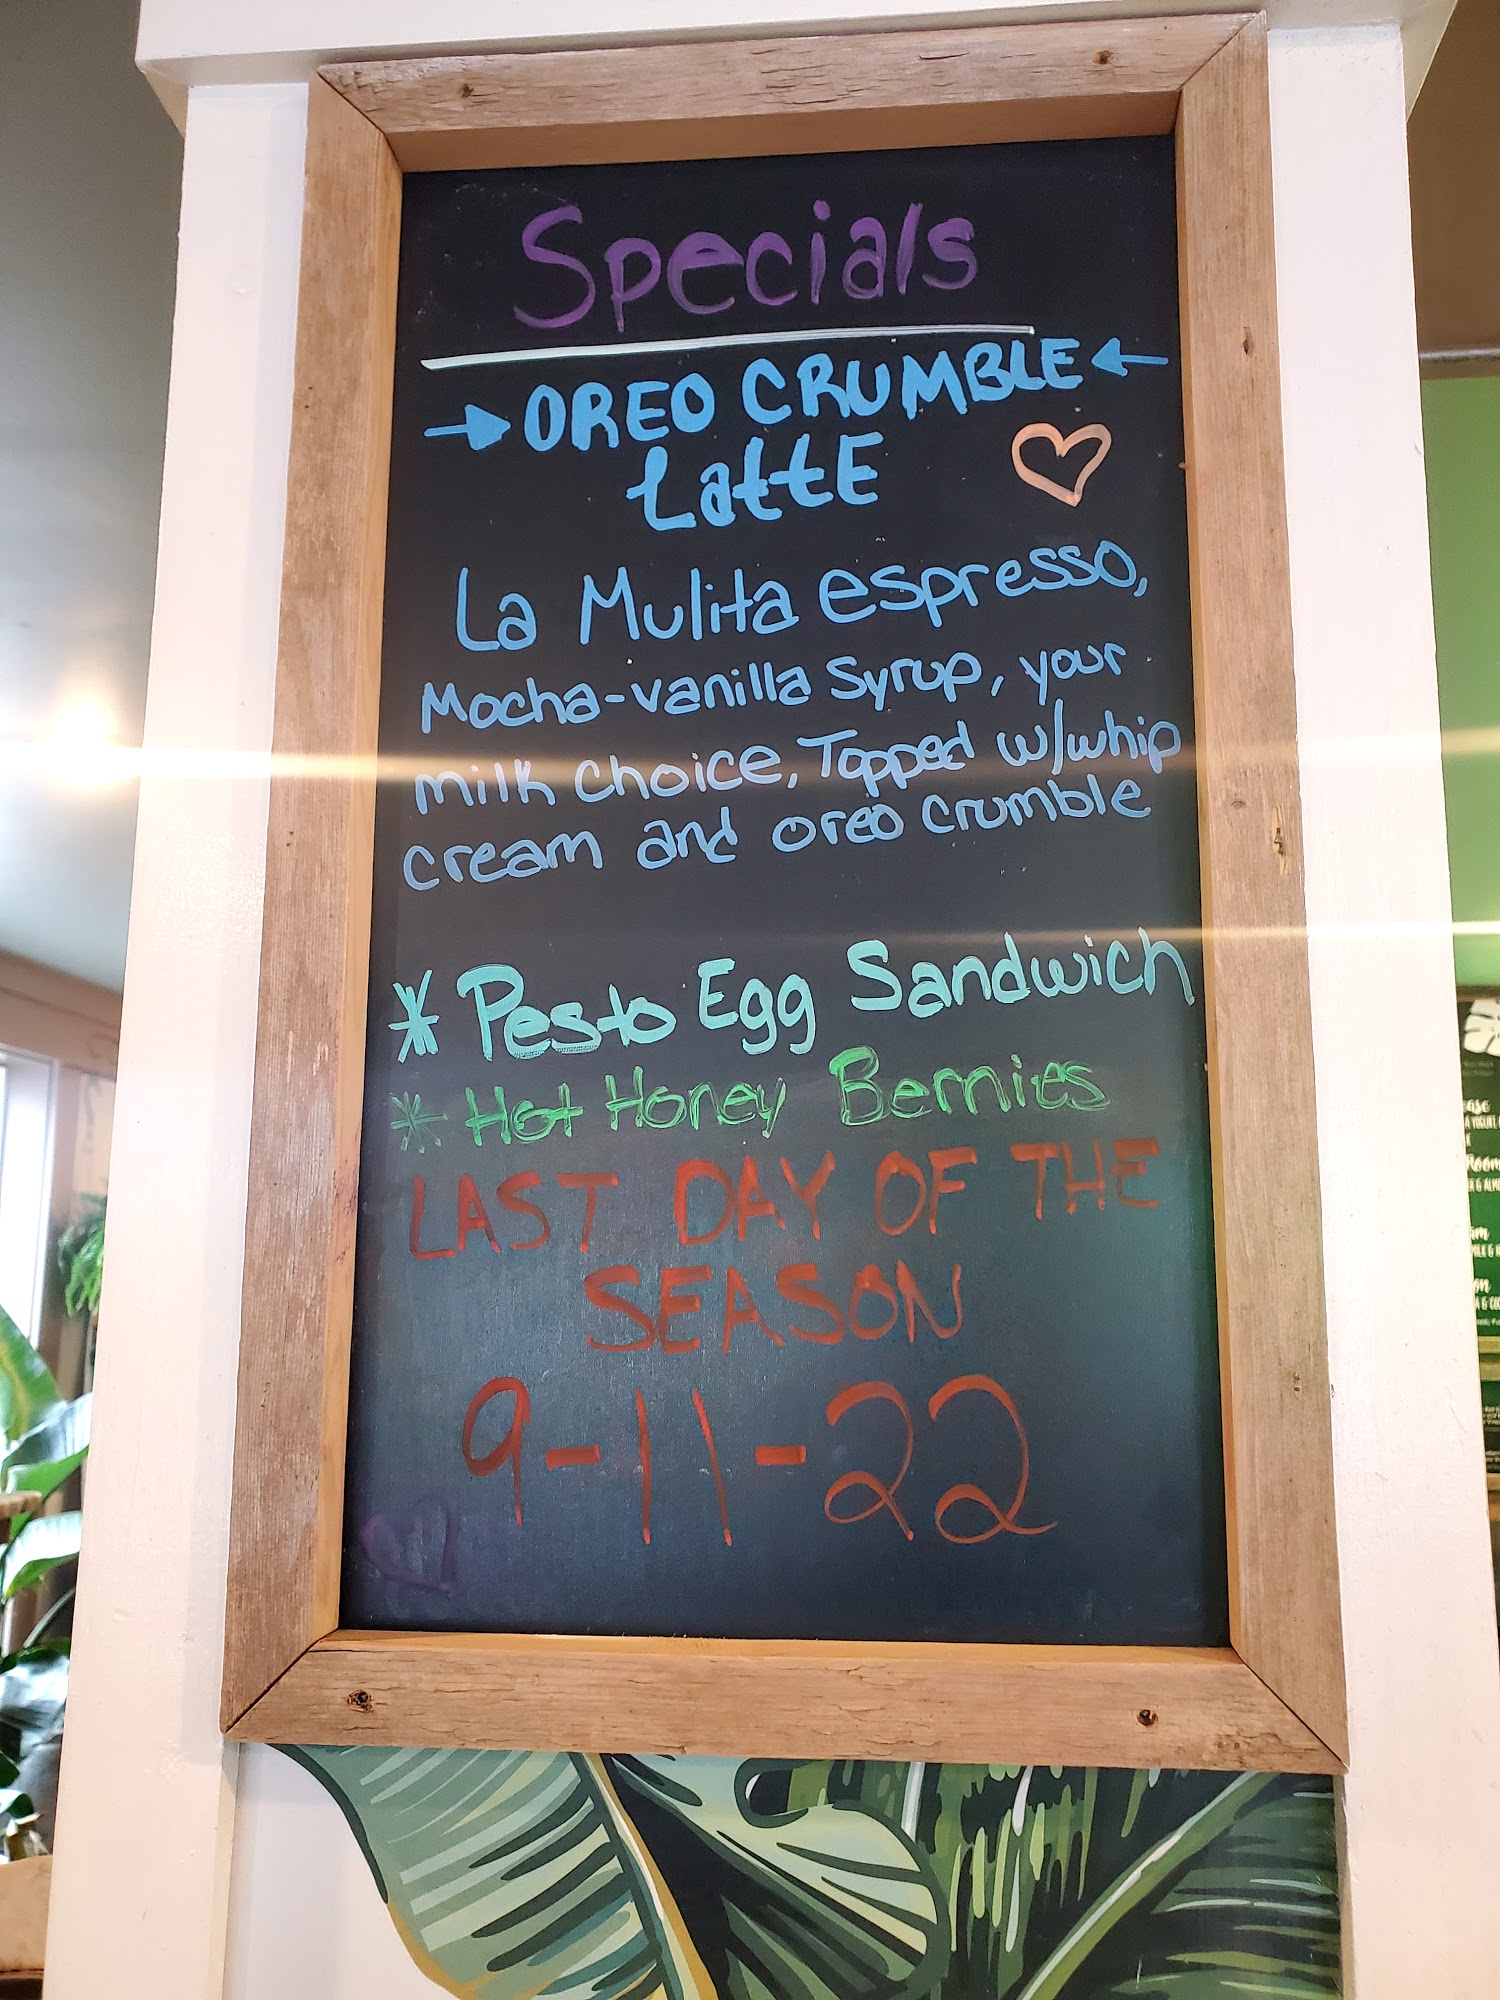 Specials
OREO CRUMBLE
LattE
La Mulita espresso,
Mocha-vanilla Syrup, your
milk choice, Topped w/whip
cream and oreo crumble
* Pesto Egg Sandwich
* Hot Honey Bernies
LAST DAY OF THE
SEASON
9-11-22